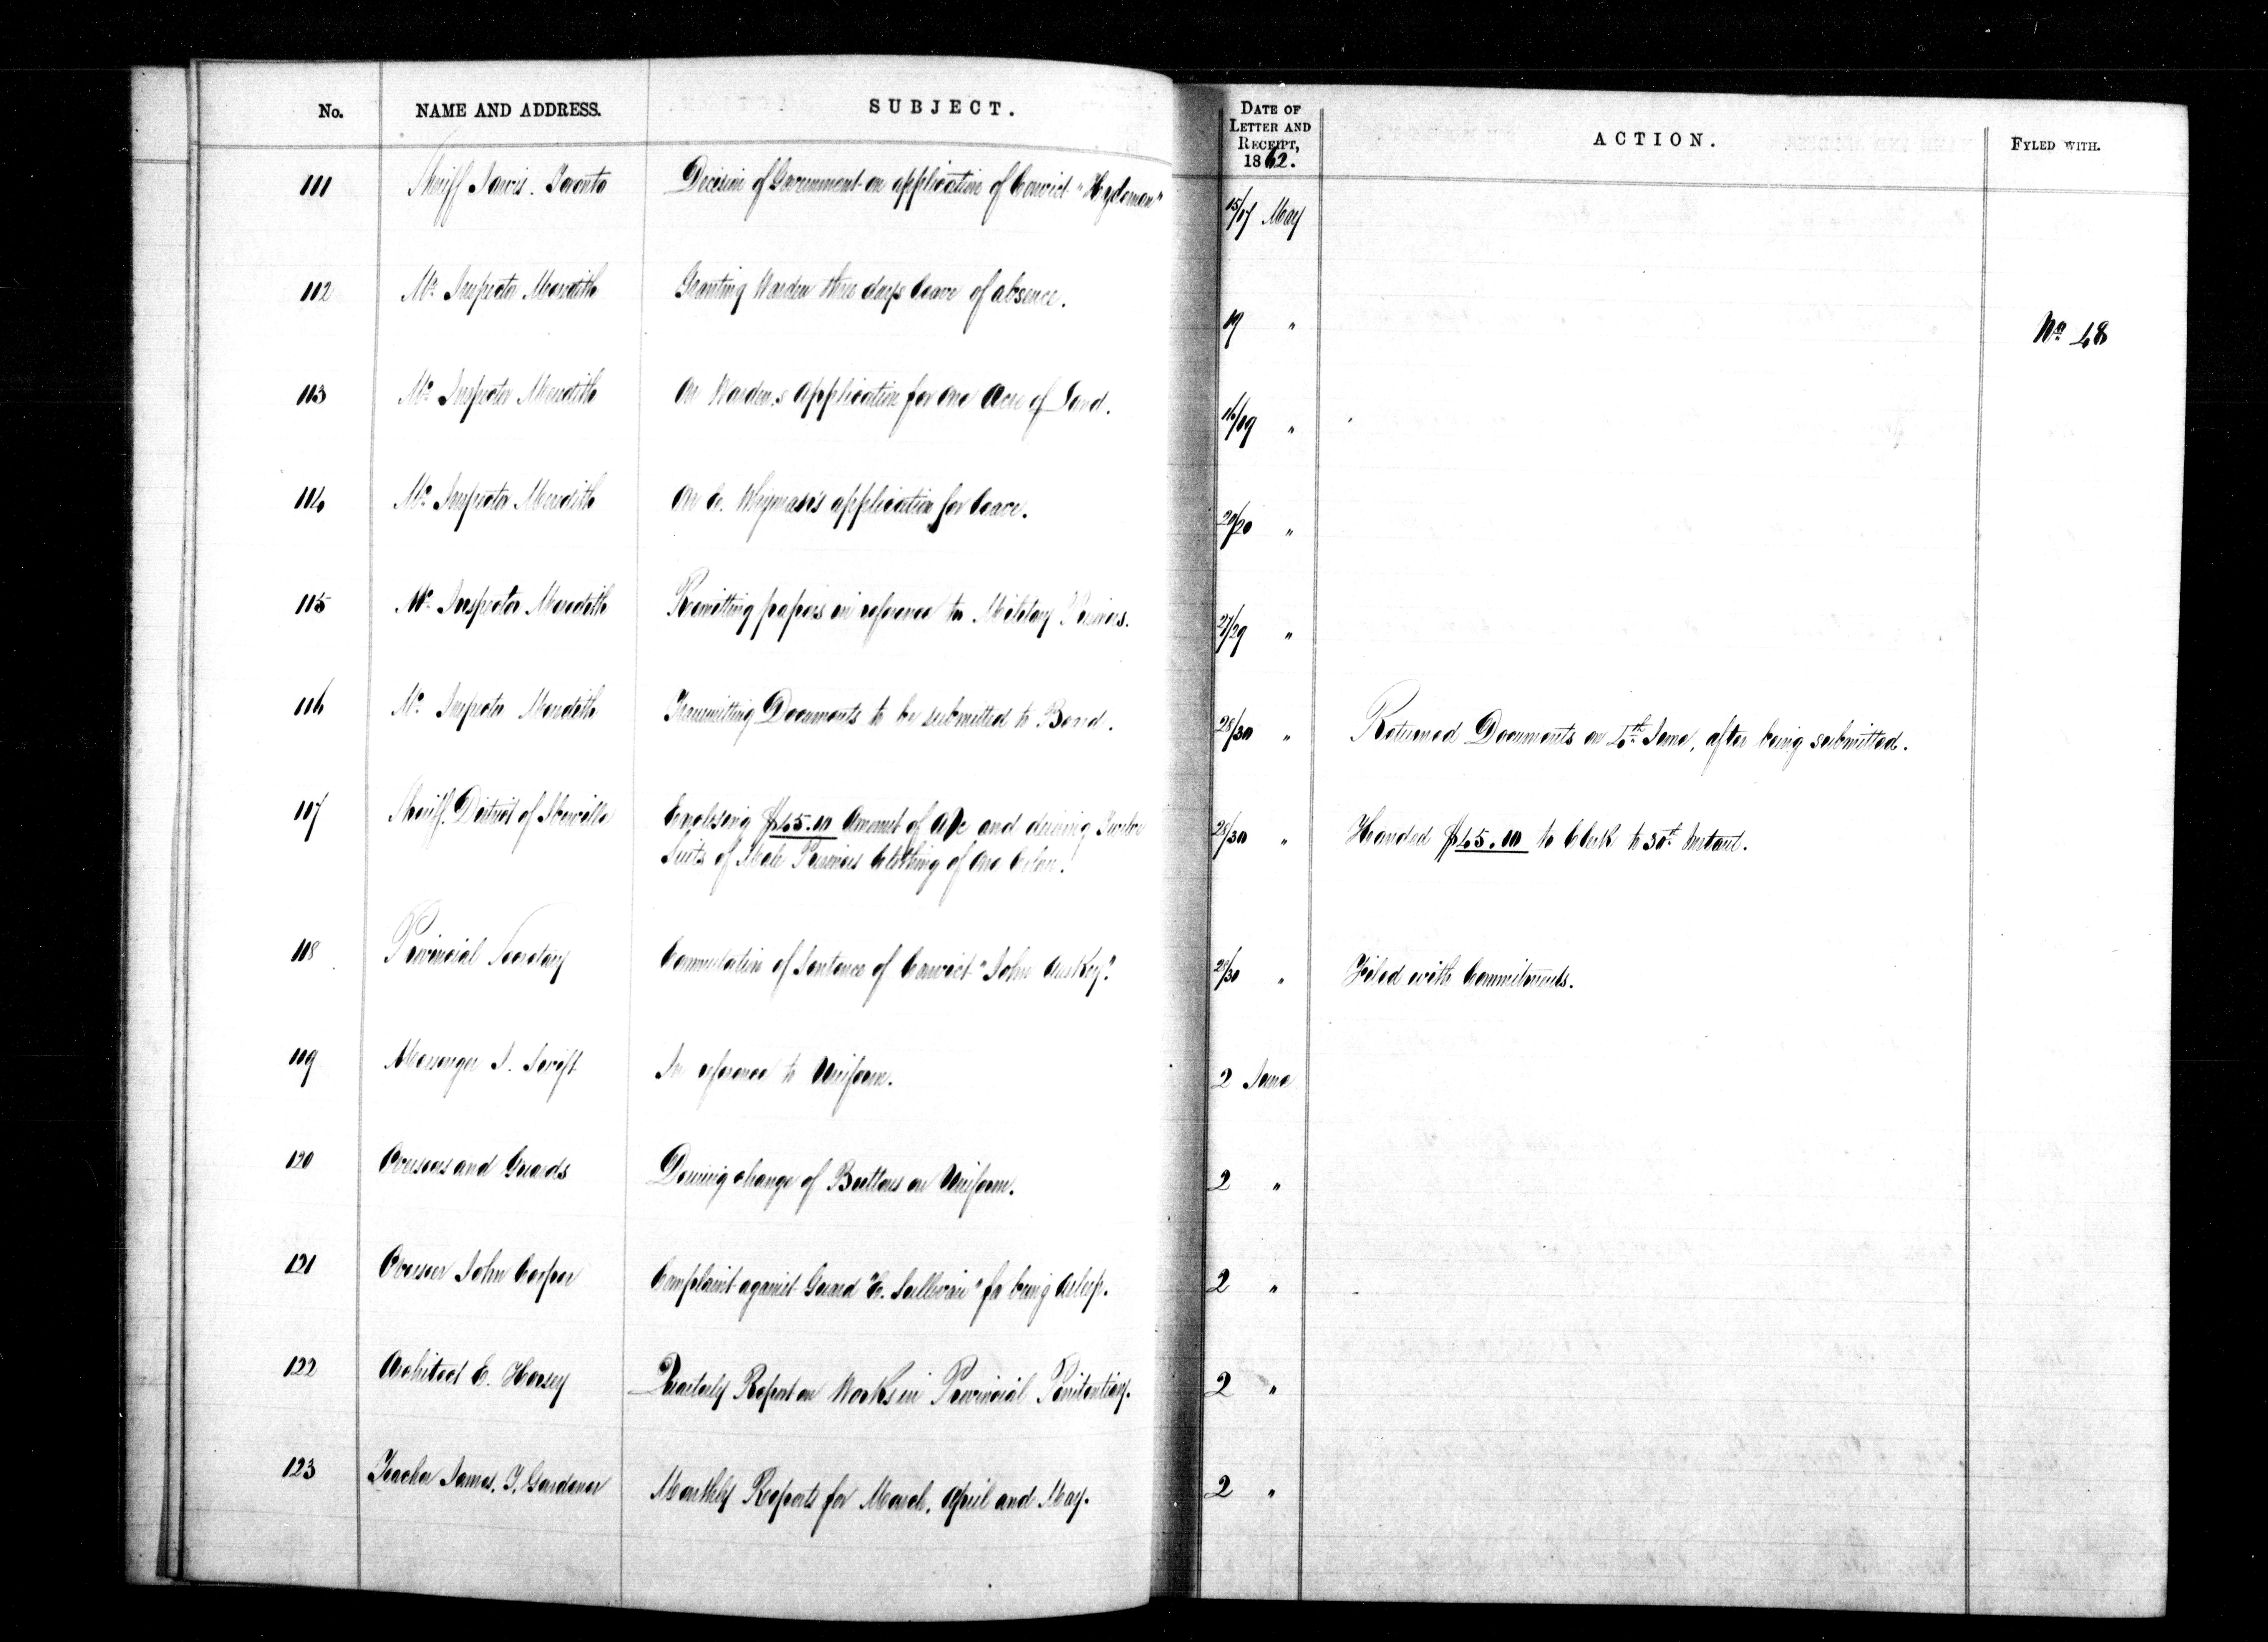 No. NAME AND ADDRESS. SUBJECT. DATE OF LETTER AND RECEIPT, 1862. ACTION. FYLED WITH.
111 Sheriff Jarvis. Toronto Decision of Government on application of Convict "Hydeman" 15/17 May
112 Mr. Inspector Meredith Granting Warden three days leave of absence. 19 " No. 48
113 Mr. Inspector Meredith On Warden,s Application for One Acre of Land. 16/19 "
114 Mr. Inspector Meredith On application for leave. 20/20 "
115 Mr. Inspector Meredith Remitting papers in reference to Military Prisons. 27/29 "
116 Mr. Inspector Meredith Transmitting Documents to be submitted to Board. 28/30 " Returned Documents on 4th June, after being submitted.
117 Sheriff. District of Iberville Enclosing $45.10 Amount of A/c and desiring Twelve 28/30 " Handed $45.10 to Clerk to 30th Instant.
Suits of Male Prisoners Clothing of One Color.
118 Provincial Secretary Commutation of Sentence of Convict "John Auskey". 28/30 " Filed with Commitments.
119 Messenger J. Swift In reference to Uniform. 2 June
120 Overseers and Guards Desiring change of Buttons on Uniform. 2 "
121 Overseer John Cooper Complaint against Guard "C. Sullivan" for being Asleep. 2 "
122 Architect E. Horsey Quarterly Report on Works in Provincial Penitentiary. 2 "
123 Teacher James. T. Gardener Monthly Reports for March, April and May. 2 "